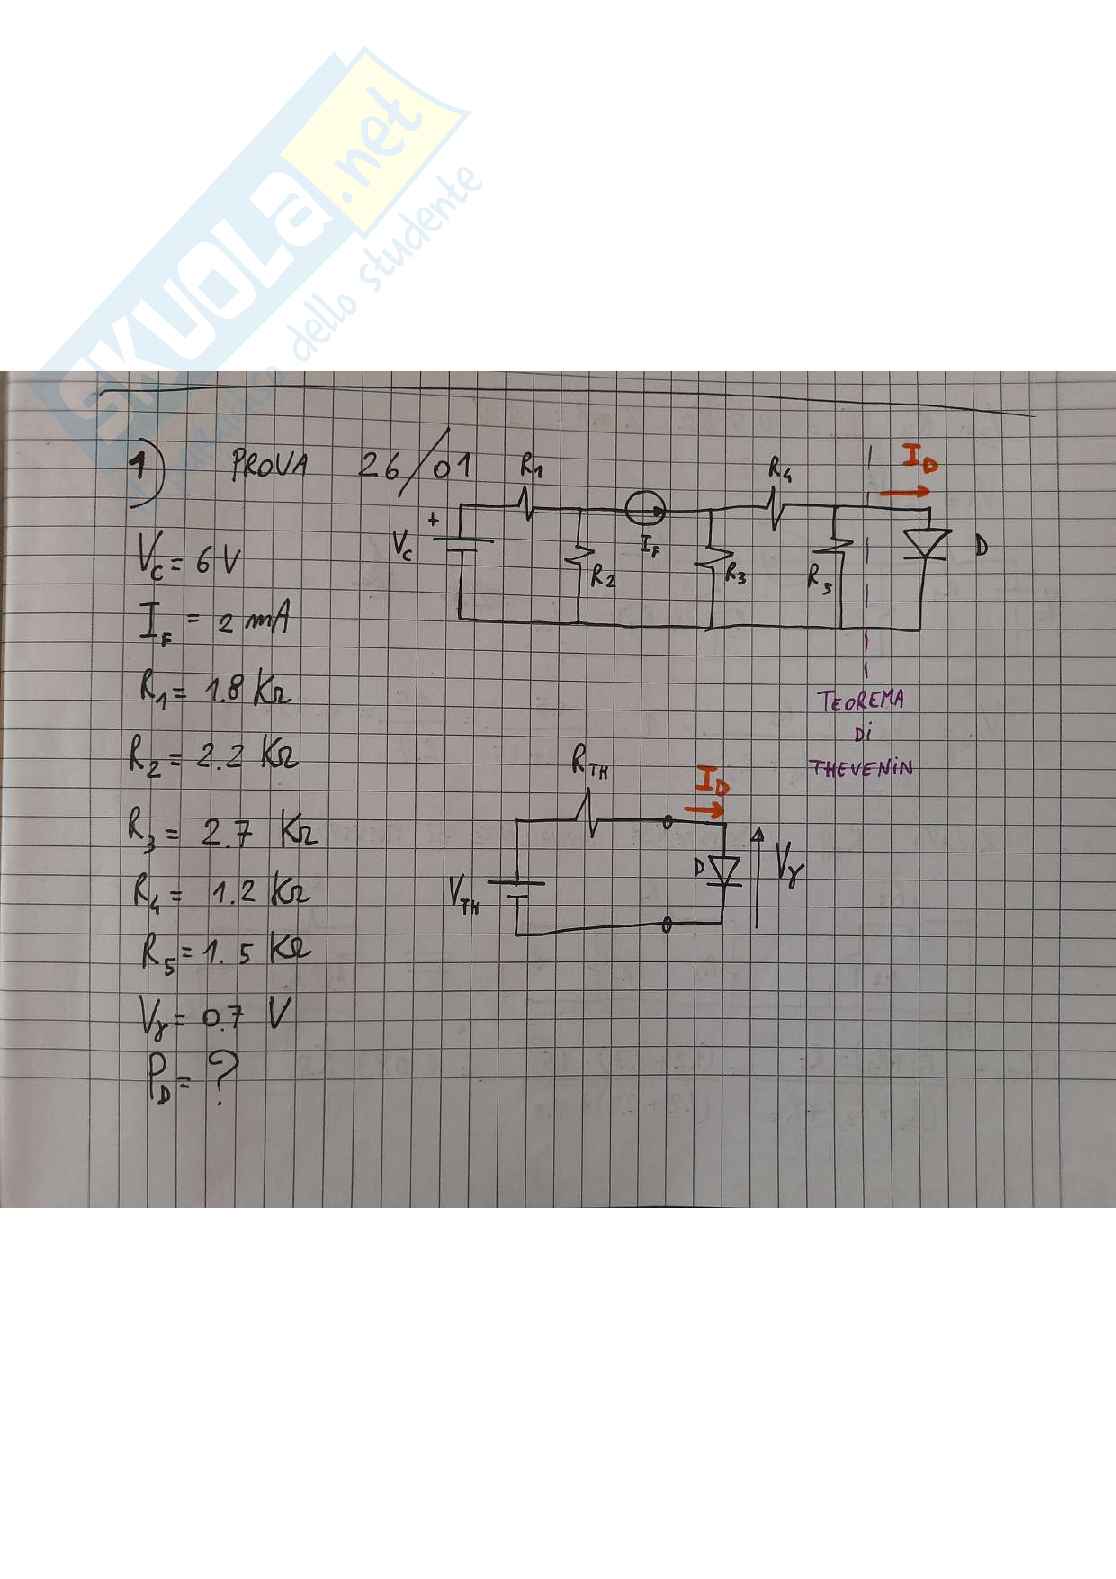 SKUOLA.net
dello studente
1) PROVA 26/01
VC = 6 V
IF = 2 mA
R1 = 1.8 KΩ
R2 = 2.2 KΩ
R3 = 2.7 KΩ
R4 = 1.2 KΩ
R5 = 1.5 KΩ
Vγ = 0.7 V
PD = ?
R1
R4
ID
+
VC
IF
D
R2
R3
R5
TEOREMA
Di
THEVENIN
RTH
ID
VTH
D
Vγ